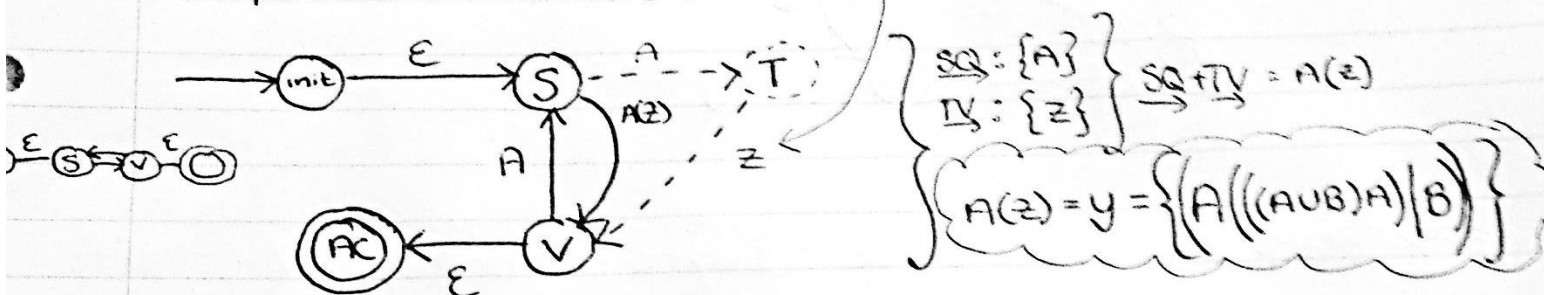 init
ε
S
A
T
A(Z)
A
Z
V
ε
AC
ε
S
V
ε
SQ : {A}
TV : {Z}
SQ + TV = A(Z)
A(Z) = y = {(A(((A∪B)A)|B)}